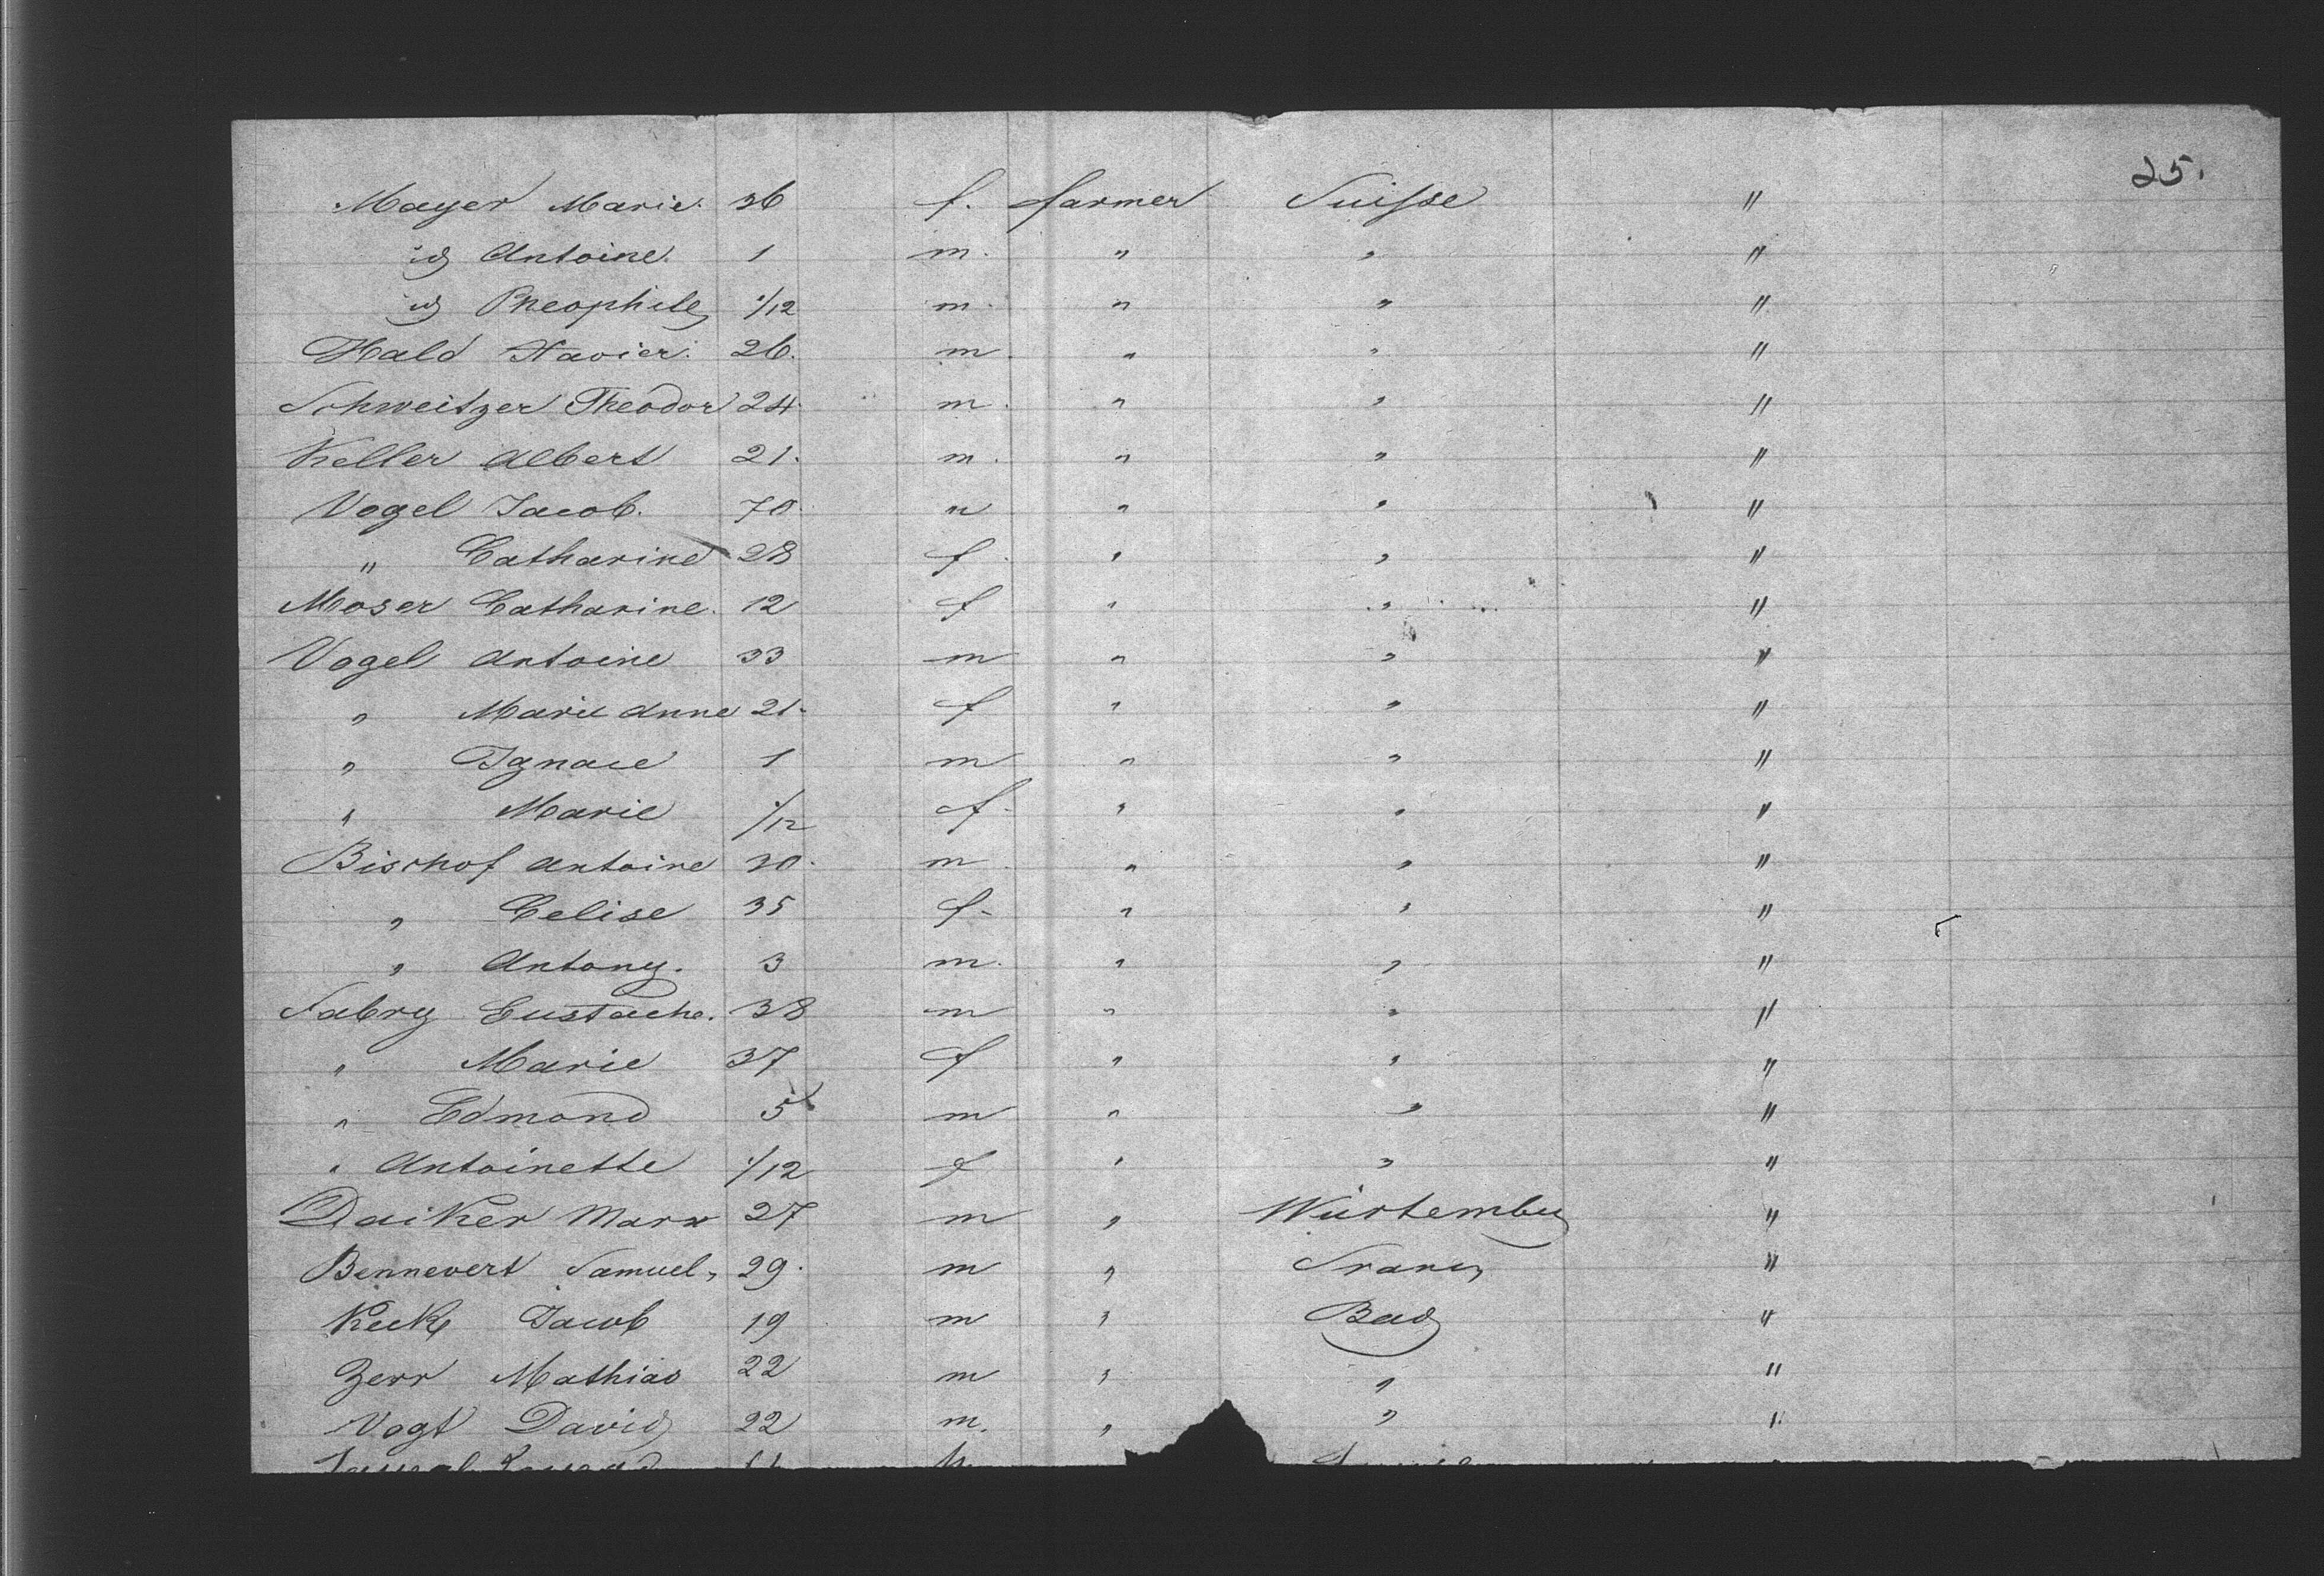 25.
Mayer Marie. 36 f. farmer Suisse "
id Antoine. 1 m. " " "
id Theophile 1/12 m. " " "
Hald Xavier. 26. m. " " "
Schweitzer Theodor 24 m. " " "
Keller Albert 21. m. " " "
Vogel Jacob. 70 m " " "
" Catharine 28 f " " "
Moser Catharine. 12 f " " "
Vogel Antoine 33 m " " "
" Marie Anne 21. f " " "
" Ignace 1 m " " "
" Marie 1/12 f. " " "
Bischof Antoine 30. m " " "
" Celise 35 f. " " "
" Antony. 3 m. " " "
Fabry Eustache. 38 m " " "
" Marie 37 f " " "
" Edmond 5 m " " "
" Antoinette 1/12 f " " "
Daiker Marx 27 m " Würtemberg "
Bennevert Samuel, 29. m " France "
Keck Jacob 19 m " Bade "
Zerr Mathias 22 m " " "
Vogt David 22 m. " " "